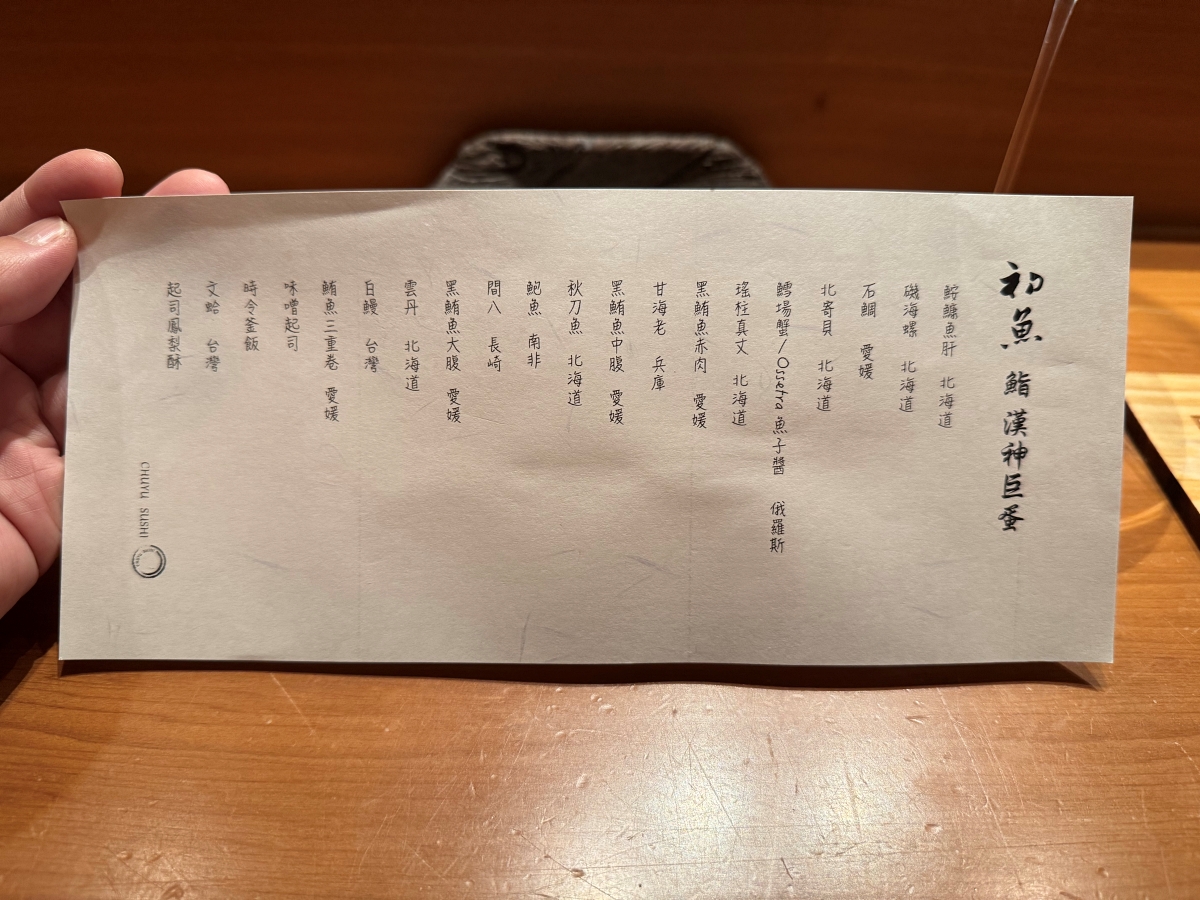 初魚 鮨 漢神巨蛋
鮟鱇魚肝 北海道
磯海螺 北海道
石鯛 愛媛
北寄貝 北海道
鱈場蟹/Ossetra 魚子醬 俄羅斯
瑤柱真丈 北海道
黑鮪魚赤肉 愛媛
甘海老 兵庫
黑鮪魚中腹 愛媛
秋刀魚 北海道
鮑魚 南非
間八 長崎
黑鮪魚大腹 愛媛
雲丹 北海道
白鰻 台灣
鮪魚三重卷 愛媛
味噌起司
時令釜飯
文蛤 台灣
起司鳳梨酥
CHUYU SUSHI